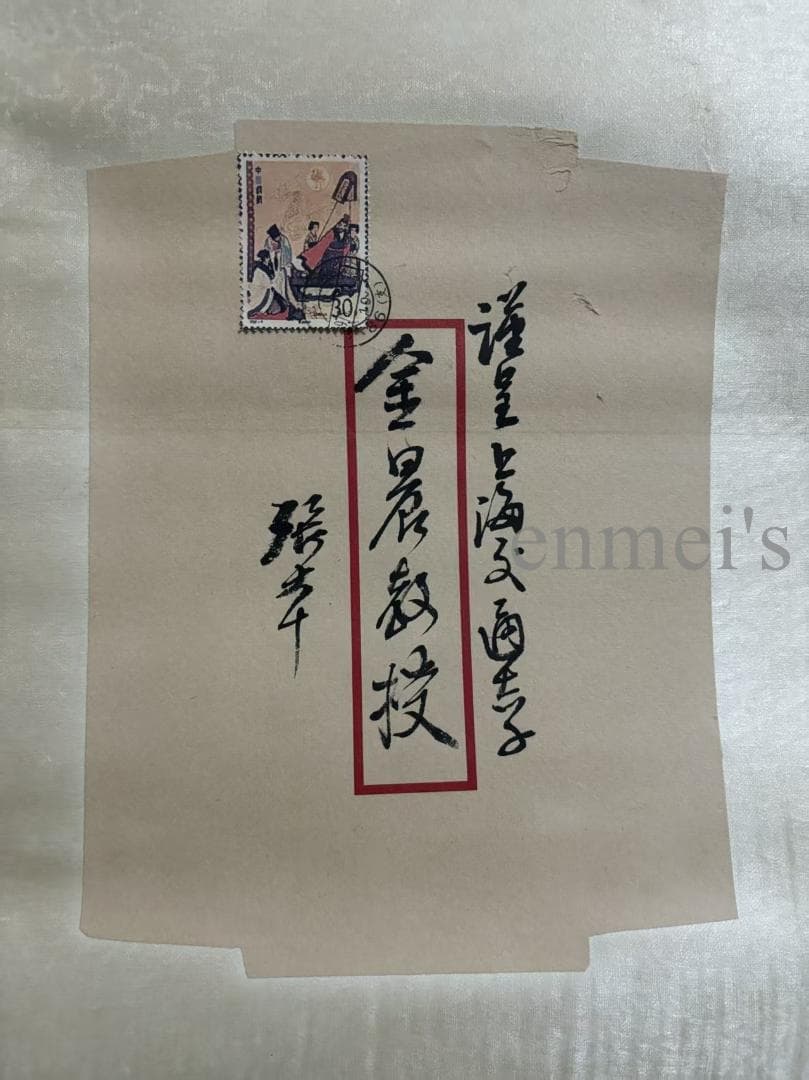 謹呈上海交通大学
金晨教授
張大千
中国邮政
30
enmei's